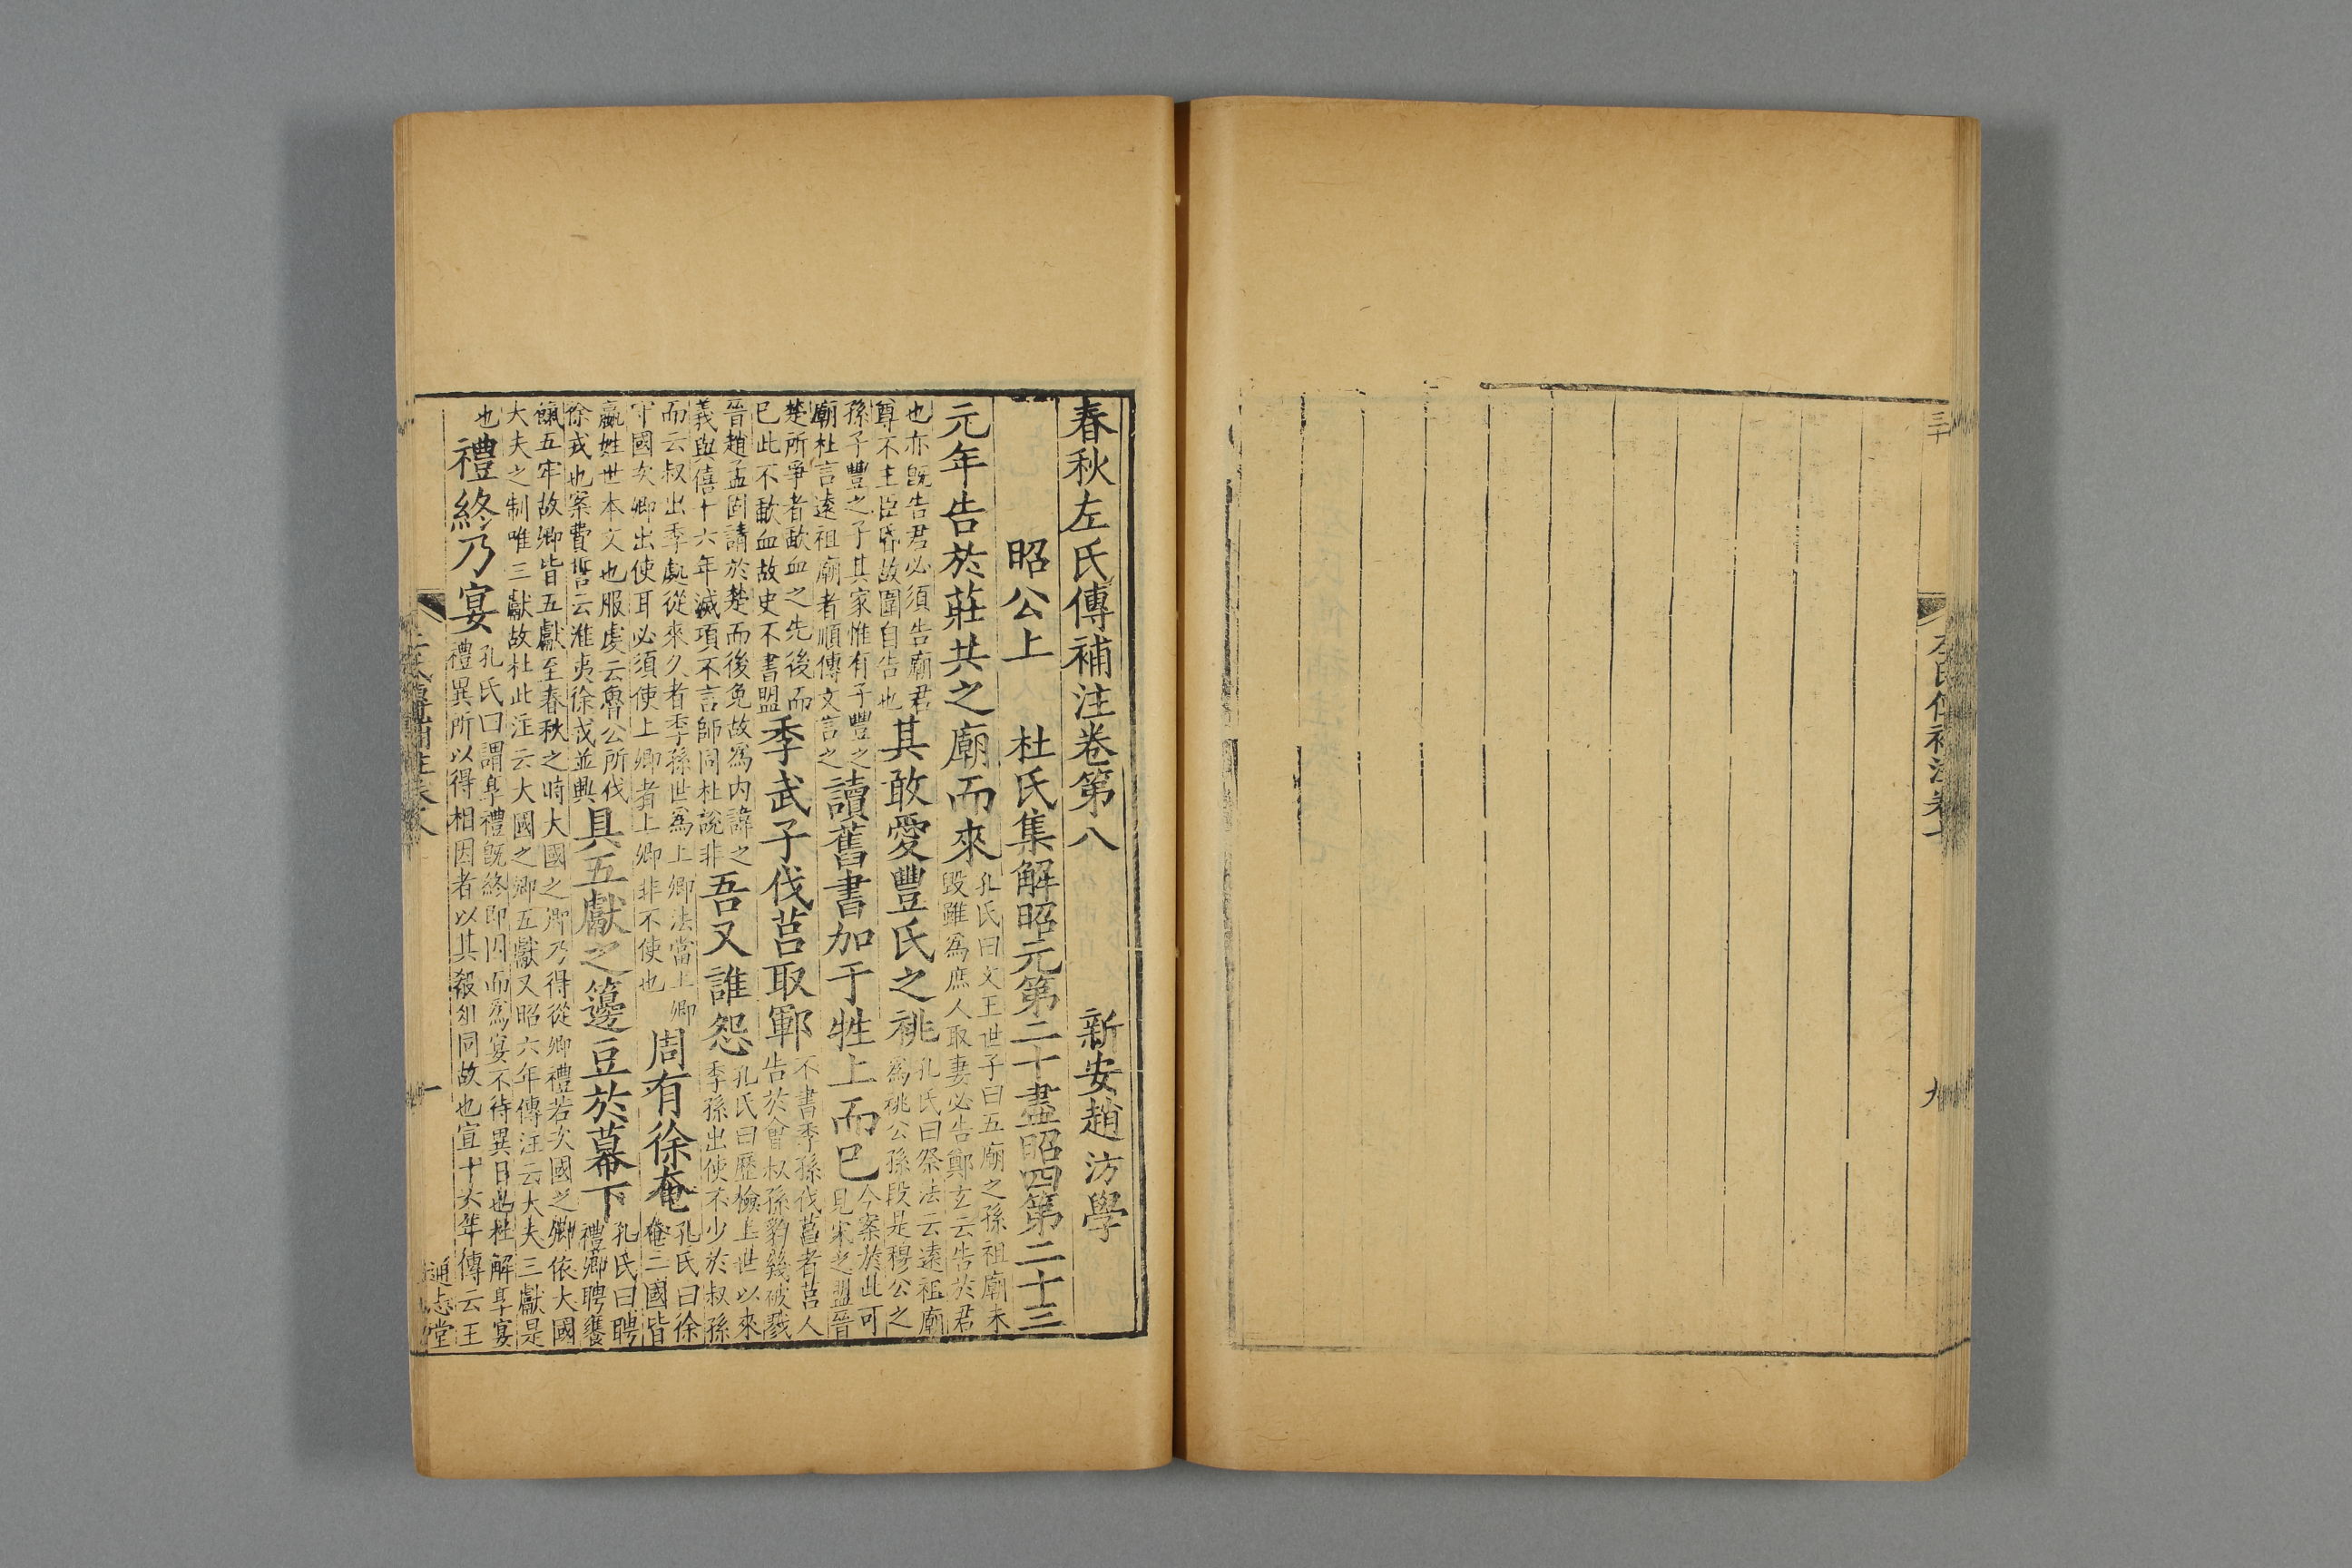 三十
左氏傳補注卷七
九
春秋左氏傳補注卷第八
新安趙汸學
昭公上
杜氏集解昭元第二十盡昭四第二十三
元年告於莊共之廟而來
孔氏曰文王世子曰五廟之孫祖廟未
毀雖爲庶人取妻必告鄭玄云告於君
也亦旣告君必須告廟君
尊不主臣昏故圍自告也
其敢愛豐氏之祧
孔氏曰祭法云遠祖廟
爲祧公孫段是穆公之
孫子豐之子其家惟有子豐之
廟杜言遠祖廟者順傳文言之
讀舊書加于牲上而已
今案於此可
見宋之盟晉
楚所爭者歃血之先後而
已此不歃血故史不書盟
季武子伐莒取鄆
不書季孫伐莒者莒人
告於會叔孫豹幾被戮
晉趙孟固請於楚而後免故爲内諱之
義與僖十六年滅項不言師同杜說非
吾又誰怨
孔氏曰歷檢上世以來
季孫出使不少於叔孫
而云叔出季處從來久者季孫世爲上卿法當上卿
守國次卿出使耳必須使上卿者上卿非不使也
周有徐奄
孔氏曰徐
奄二國皆
嬴姓世本文也服虔云魯公所伐
徐戎也案費誓云淮夷徐戎並興
具五獻之籩豆於幕下
孔氏曰聘
禮卿聘饔
餼五牢故卿皆五獻至春秋之時大國之卿乃得從卿禮若次國之卿依大國
大夫之制唯三獻故杜此注云大國之卿五獻又昭六年傳注云大夫三獻是
也
禮終乃宴
孔氏曰謂享禮旣終即因而爲宴不待異日也杜解享宴
禮異所以得相因者以其殽烝同故也宣十六年傳云王
左氏傳補注卷八
一
通志堂